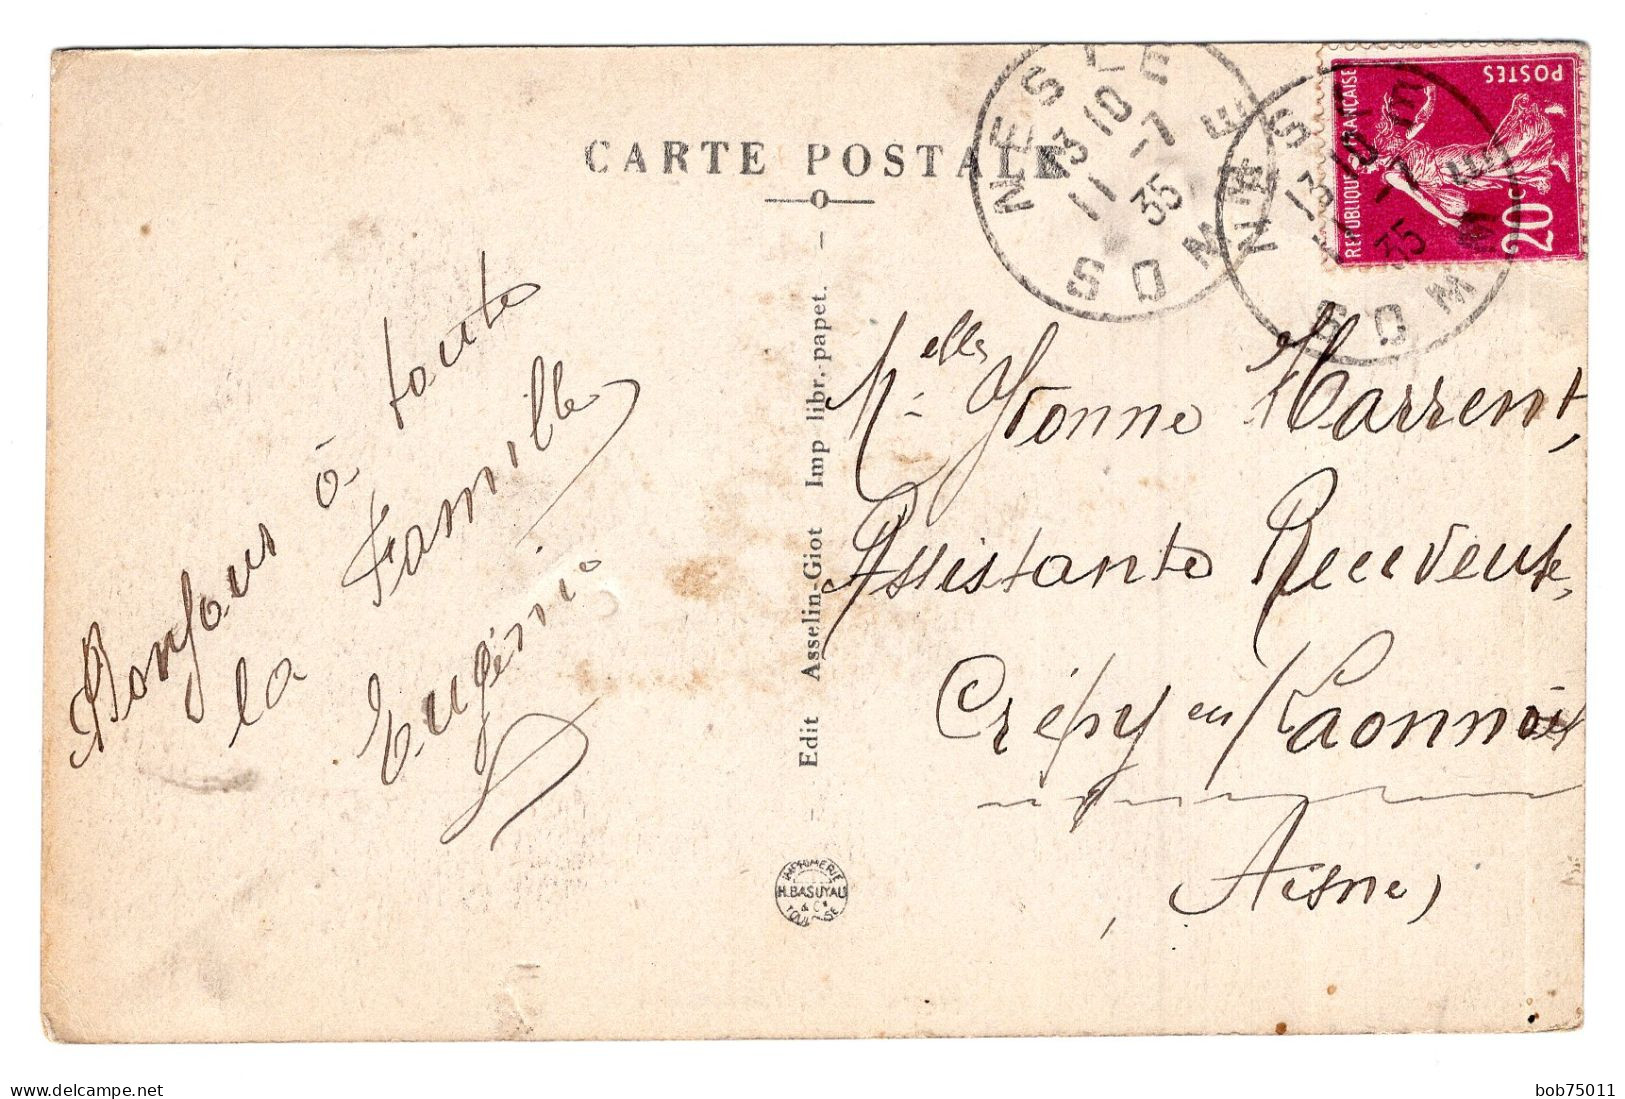 CARTE POSTALE
NESLE
13 10
11 -7
35
SOMME
NESLE
13 10
11 -7
35
SOMME
REPUBLIQUE FRANÇAISE
POSTES
20c
Bonjour à toute
la Famille
Eugénie
Edit Asselin-Giot Imp libr.-papet.
Melle Yvonne Marrent,
Assistante Receveuse,
Crépy en Laonnois
(Aisne)
IMPRIMERIE
H. BASUYAU
& Cie
TOULOUSE
bob75011